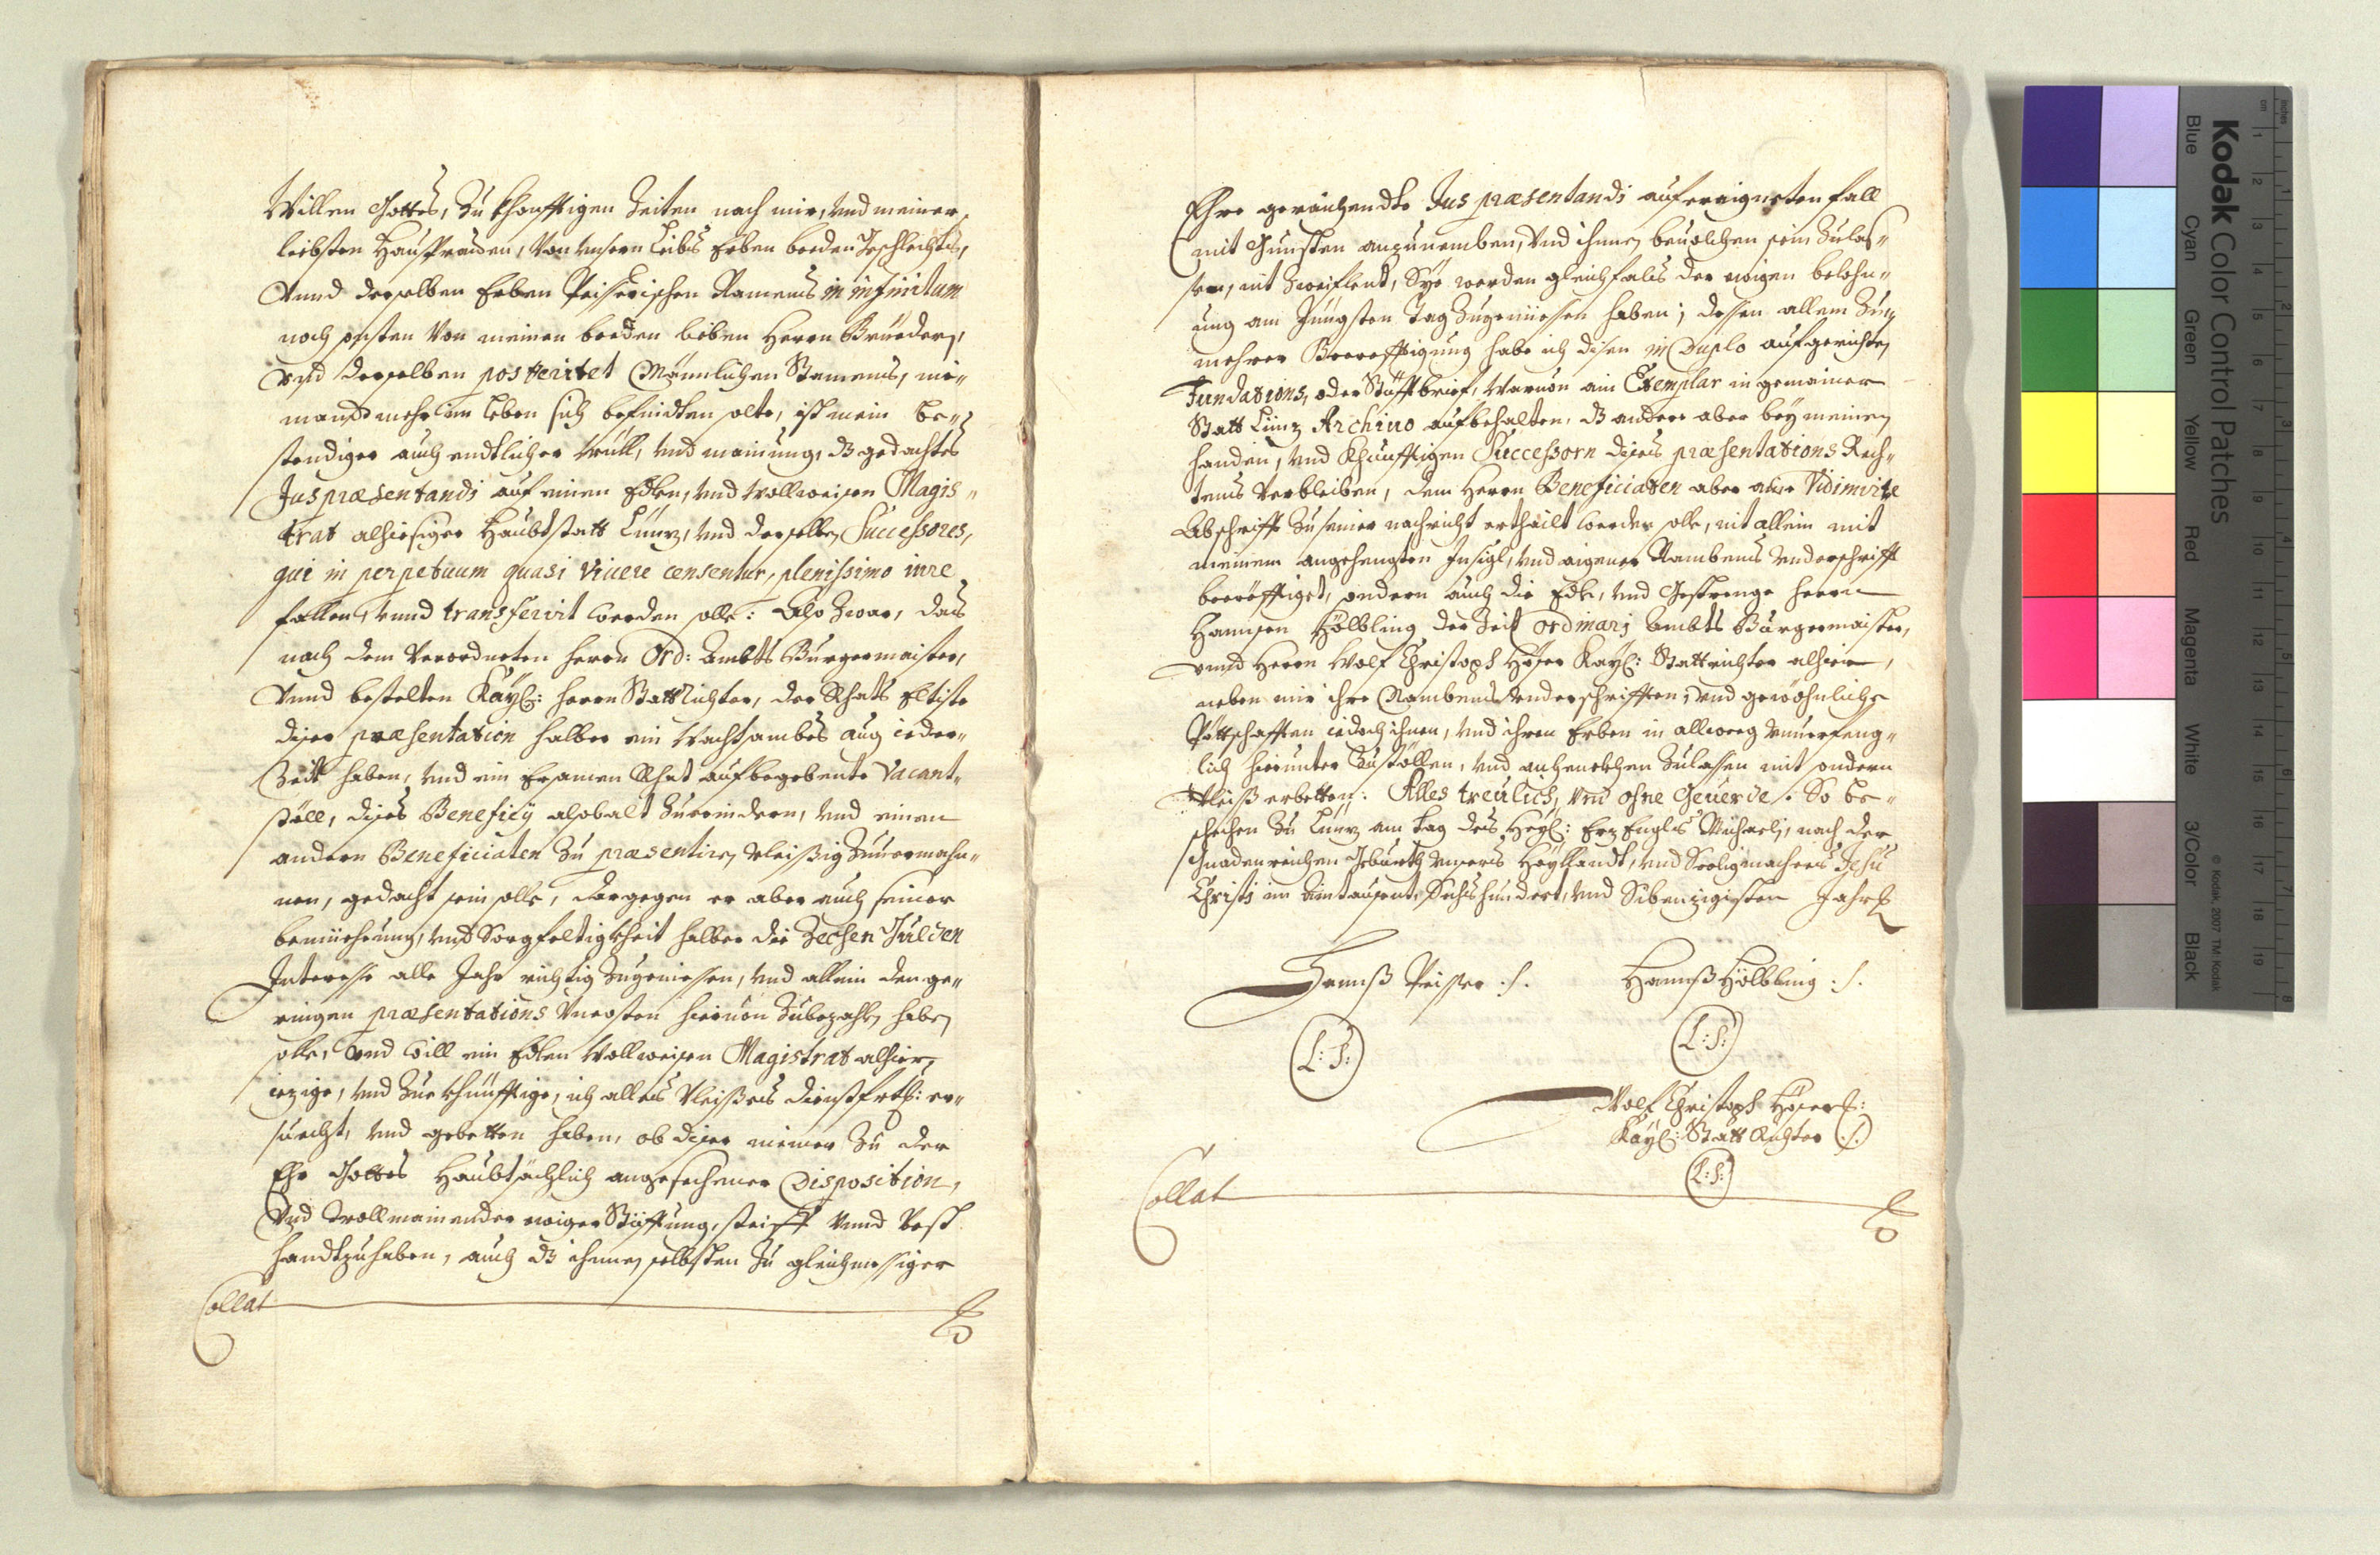 Willen Gottes, zu khonfftigen Zeiten nach mir, und meiner
liebsten Haußfrauen, Von unsern Leibs Erben beeden Geschlechts,
Vnnd derselben Erben Peisserischen Namens in infinitum
noch sonsten Von meinen beeden lieben Herrn Brüedern,
Vnd derselben posteritet Männlichen Stamens, nie„
mandt mehr im leben sich befindten solte, ist mein be„
stendiger auch endtlicher will, vnd mainung, dz gedachtes
Jus præsentandi auf einen Edlen, vnd wollweisen Magis„
trat alhiesiger Haubtstatt Lünz, vnd derselben Successores,
qui in perpetuum quasi viuere censentur, plenissimo iure
fallen, vnnd transferirt werden solle: Also zwar, das
nach dem Verordneten Herrn Ord: Ambts Burgermaister,
Vnnd bestelten Kayl: Herrn Stattrichter, der Rhats Eltiste
diser præsentation halber ein Wachtsambes aug ieder„
Zeit haben, vnd ein Ersamen Rhat auf begebente Vacant„
stöll, dises Beneficÿ alsobalt zuerindern, vnd einen
andern Beneficiaten zu præsentirn, vleissig zuuermahn„
nen, gedacht sein solle, dargegen er aber auch seiner
bemüehung, vnd Sorgfeltigkheit halber die Zechen Gulden
Interesse alle Jahr richtig zugeniessen, vnd allein den ge„
ringen præsentations Vncosten hieruon zubezahlen haben
solle, Vnd will ein Edlen Wollweisen Magistrat alhier,
iezige, vnd zue khünfftige, ich alles Vleisses dienstfrl: er„
suecht, vnd gebetten haben, ob diser meiner zu der
Ehr Gottes Haubtsächlich angesechener Disposition,
Vnd wollmainender ewiger Stüfftung, steiff vnnd Vest
handtzuhaben, auch dz ihnen selbsten zu gleichmessiger
Collat
Ehre geraichendte Jus præsentandi auf eraigneten fall
mit Gunsten anzunemben, Vnd ihnen beuolchen sein zulas„
sen, nit zweiflendt, Sye werden gleichfals der ewigen belohn„
ung am Jüngsten Tag zugeniessen haben; dessen allem zu„
mehrer Becrefftigung habe ich disen in Duplo aufgerichten
Fundations, oder Stüfftbrief, Waruon ain Exemplar in gemainer
Statt Lünz Archiuo aufbehalten, dz andere aber bey meinen
handen, vnd Khünfftigen Successorn dises præsentations Rech„
tens Verbleiben, dem Herrn Beneficiaten aber aine Vidimirte
Abschrifft zu seiner nachricht ertheilt werden solle, nit allein mit
meinem angehengten Insigl, vnd aigener Nambens Vnderschrifft
becröfftiget, sondern auch die Edle, vnd Gestrenge Herrn
Hannsen Hölbling der Zeit ordinarj Ambts Burgermaister,
vnnd Herrn Wolf Christoph Höser Kayl: Stattrichter alhier,
neben mir ihre Nambens Vnderschrifften, vnd gewöhnliche
Pöttschafften iedoch ihnen, vnd ihren Erben in allweg vnuerfeng„
lich hierunter zustöllen, vnd anhenckhen zulassen mit sondern
Vleiß erbetten: Alles treulich, vnd ohne Geuerde ./. So be„
schechen zu Lünz am Tag des Heyl: Erz Engls Michaelj, nach der
Gnadenreichen Geburth vnsers Heyllandt, vnd Seeligmachers Jesu
Christi im Aintausent, Sechshundert, vnd Sibenzigisten Jahr
Hannß Peisser ./. Hannß Hölbling ./.
L: S: L: S:
Wolf Christoph Höser
Kayl: Statt Richter ./.
L: S:
Collat